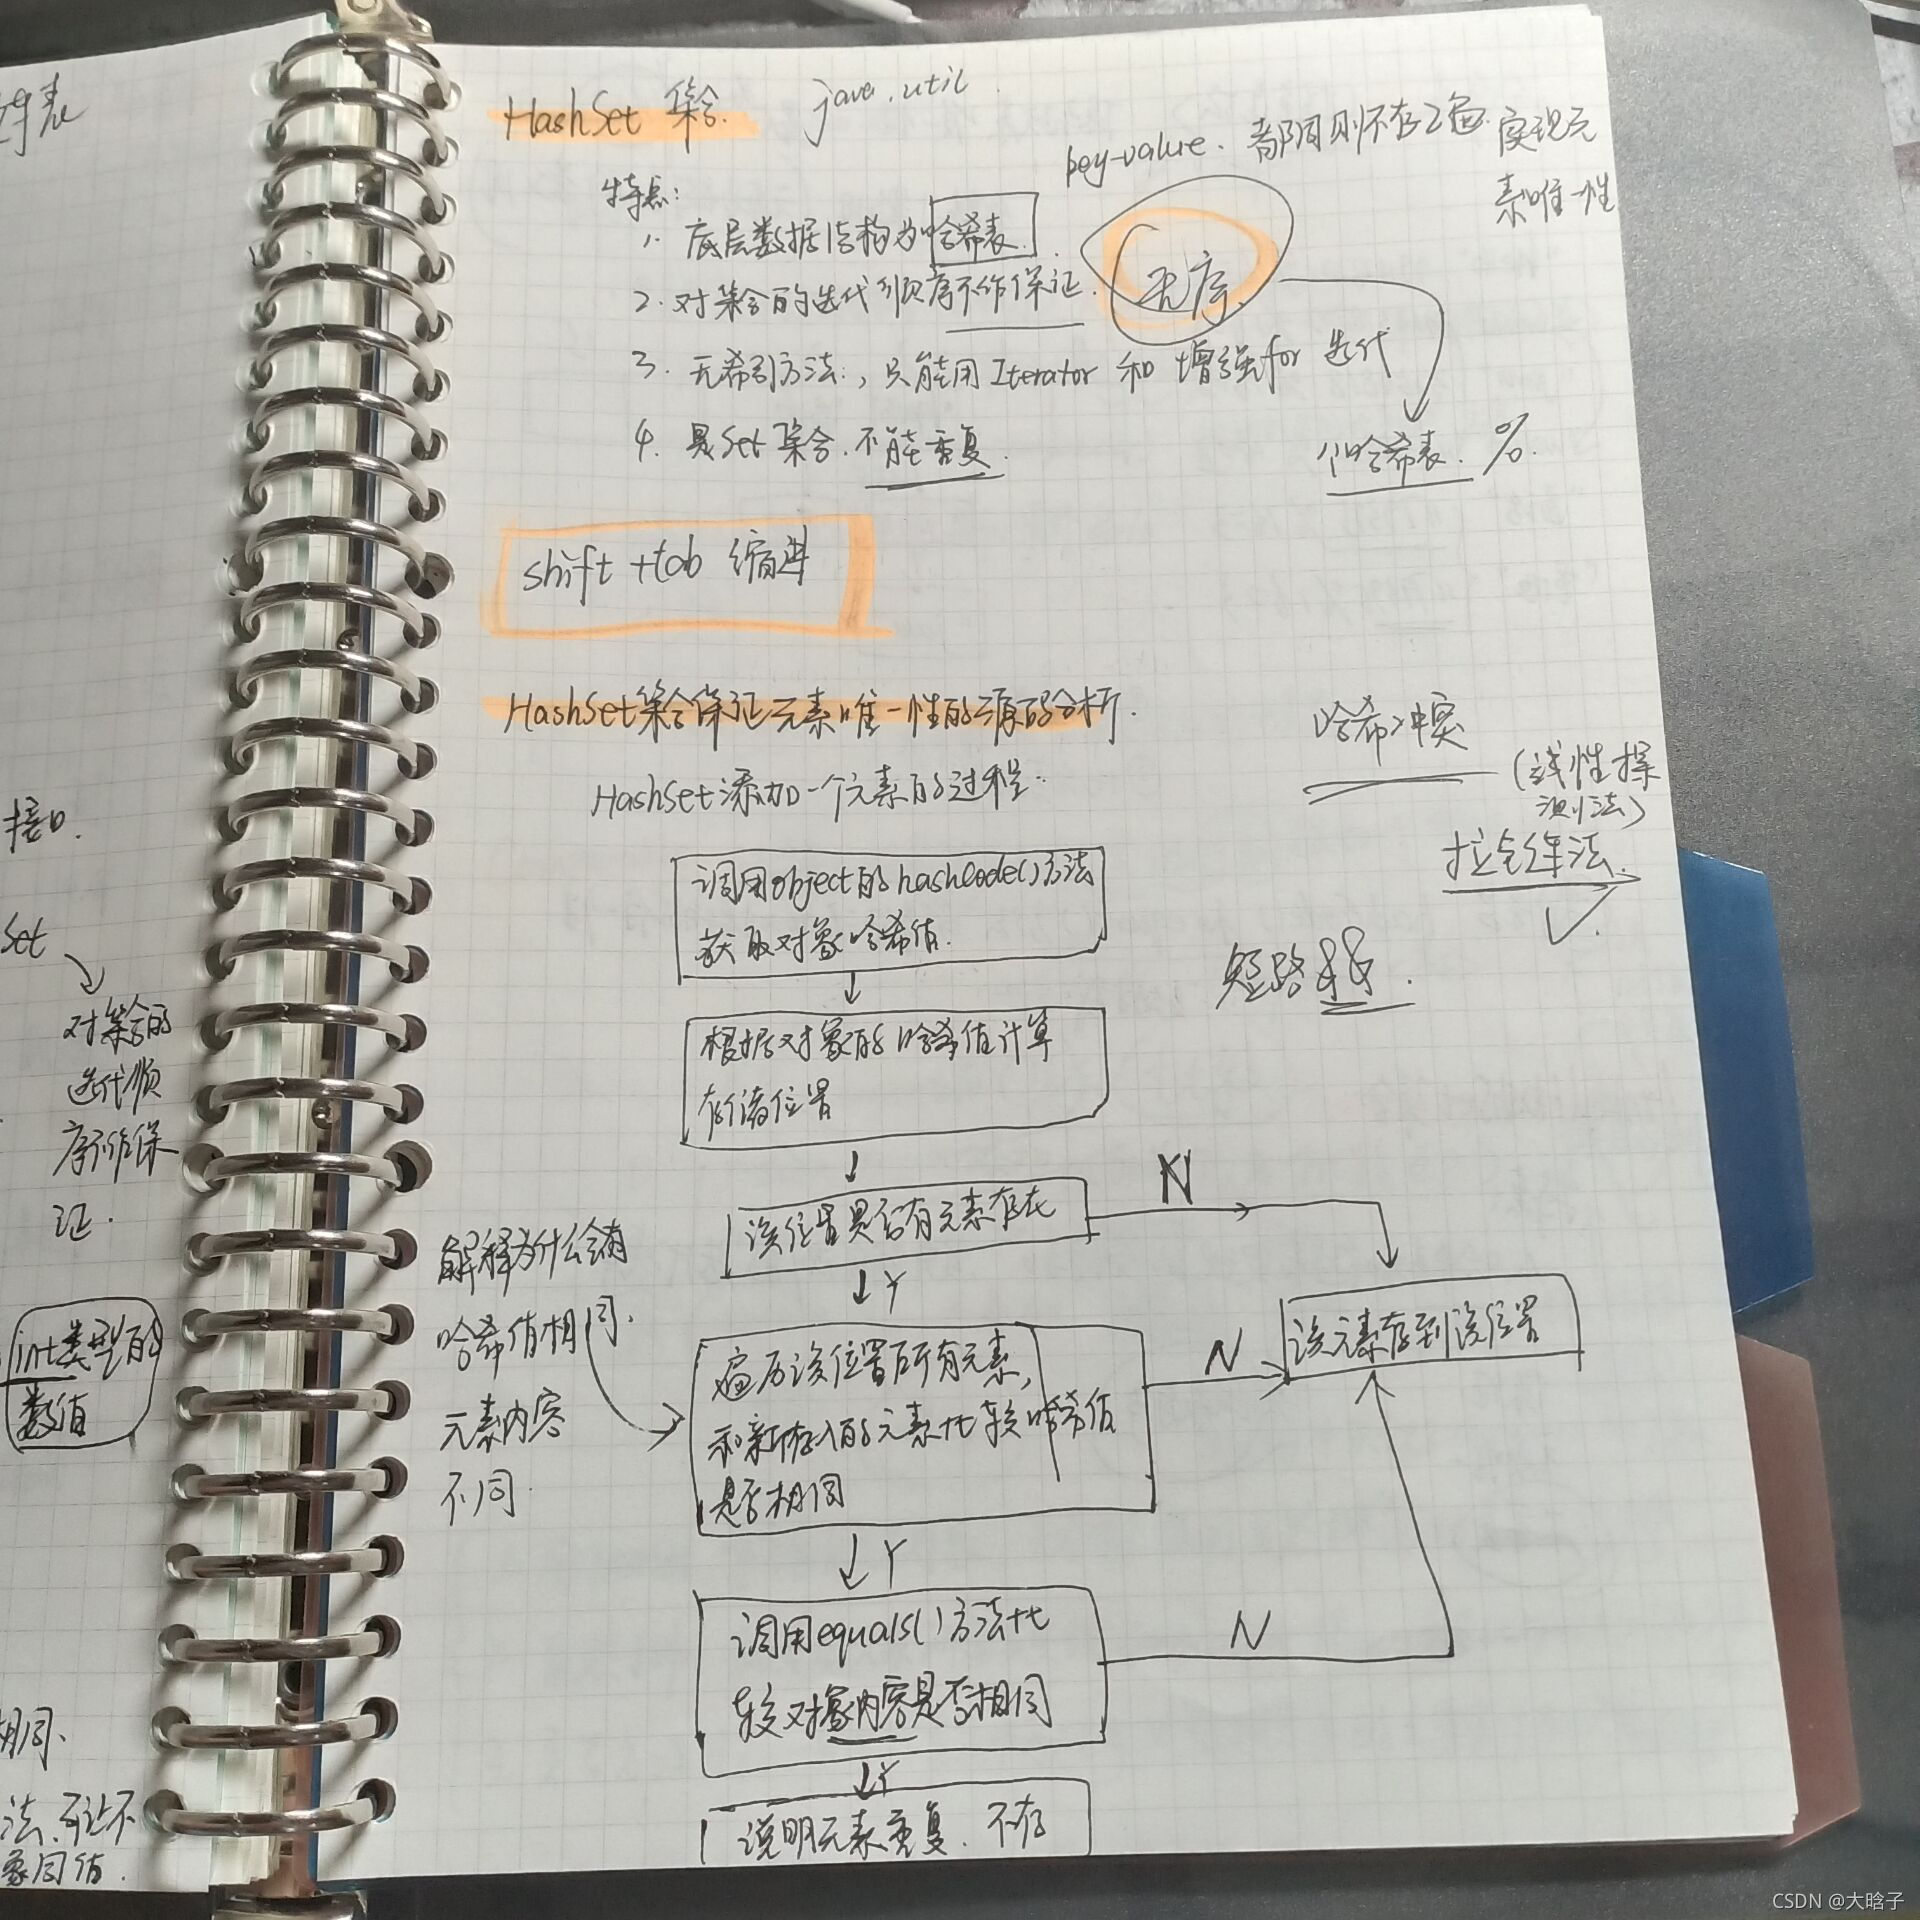 HashSet 集合. java.util
key-value. 都同则不存 实现元
素唯一性
特点:
1. 底层数据结构为哈希表.
2. 对集合的迭代顺序不作保证. 无序.
3. 无索引方法, 只能用 Iterator 和 增强for 迭代
4. 是Set 集合. 不能重复.
个哈希表. %.
shift +tab 缩进
HashSet集合保证元素唯一性的源码分析.
HashSet添加一个元素的过程:
哈希冲突
(线性探
测法)
拉链法.
短路&&.
调用object的hashCode()方法
获取对象哈希值.
根据对象的哈希值计算
存储位置
该位置是否有元素存在
N
Y
解释为什么会有
哈希值相同.
元素内容
不同.
遍历该位置所有元素,
和新存入的元素比较哈希值
是否相同
N
该元素存到该位置
Y
调用equals()方法比
较对象内容是否相同
N
Y
说明元素重复. 不存
接口.
Set
对集合的
迭代顺
序不作保
证.
int类型的
数值
相同.
法.可让不
象同值.
CSDN @大晗子